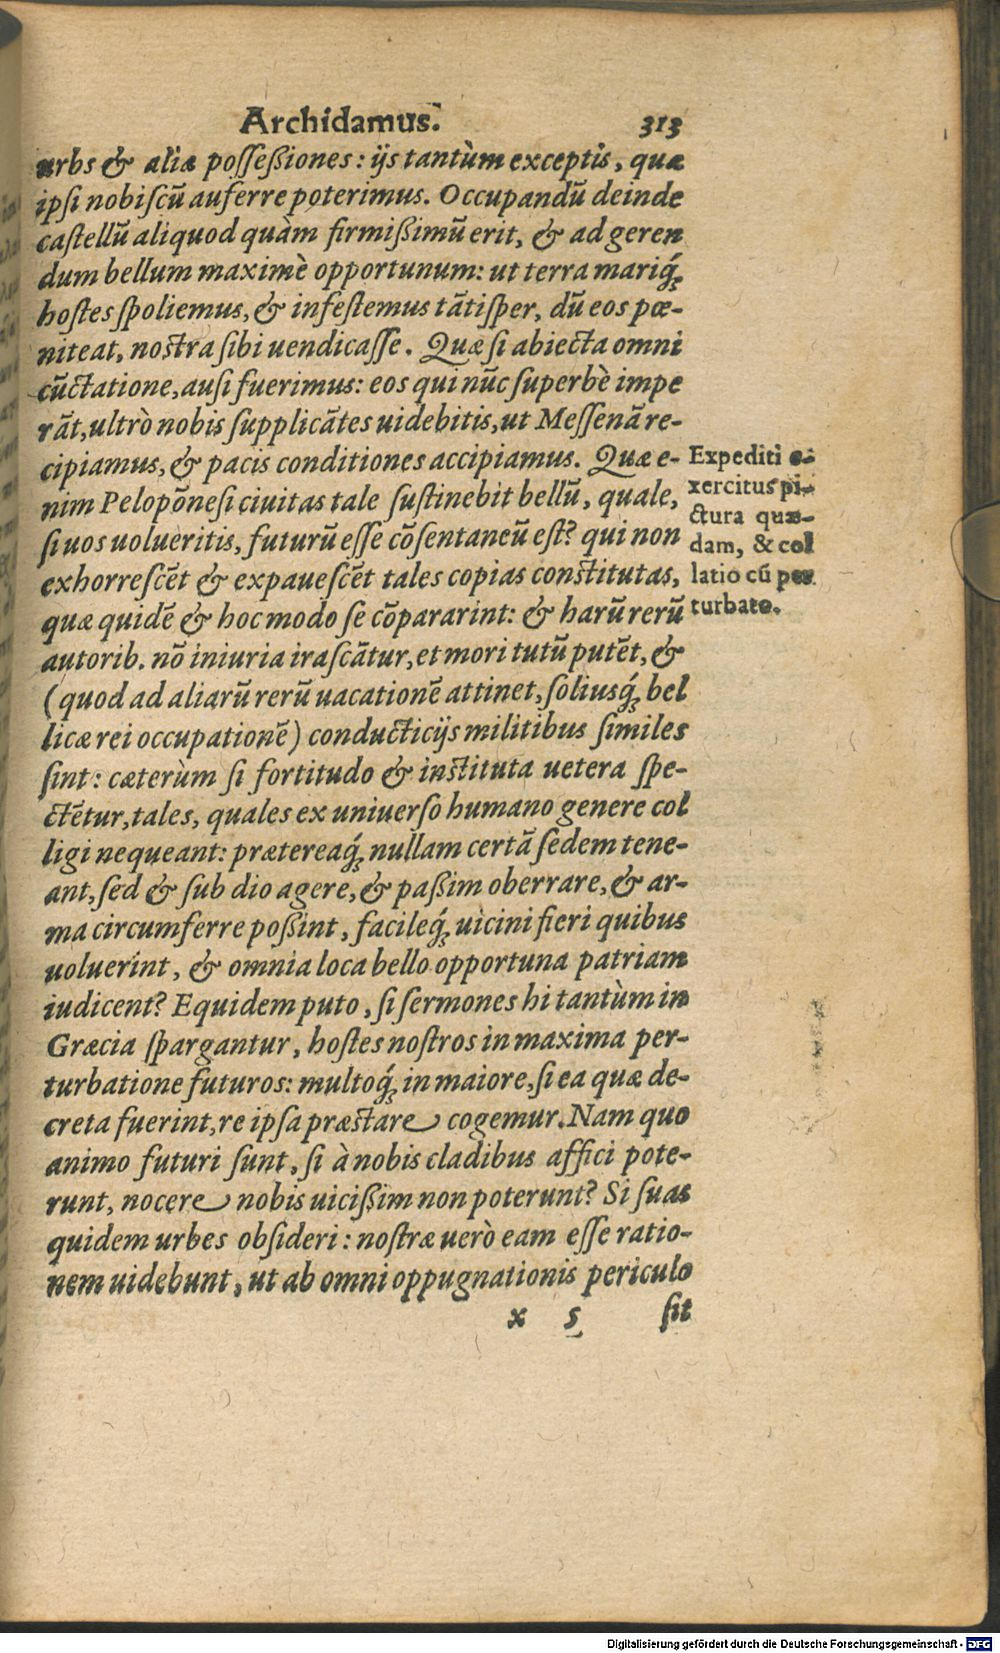 Archidamus. 313
urbs & aliæ possessiones: ijs tantùm exceptis, quæ
ipsi nobiscũ auferre poterimus. Occupandũ deinde
castellũ aliquod quàm firmissimũ erit, & ad geren
dum bellum maximè opportunum: ut terra mariq́;
hostes spoliemus, & infestemus tãtisper, dũ eos pœ-
niteat, nostra sibi uendicasse. Quæ si abiecta omni
cũctatione, ausi fuerimus: eos qui nũc superbè impe
rãt, ultrò nobis supplicãtes uidebitis, ut Messenã re-
cipiamus, & pacis conditiones accipiamus. Quæ e-
nim Pelopõnesi ciuitas tale sustinebit bellũ, quale,
si uos uolueritis, futurũ esse cõsentaneũ est? qui non
exhorrescẽt & expauescẽt tales copias constitutas,
quæ quidẽ & hoc modo se cõpararint: & harũ rerũ
autorib. nõ iniuria irascãtur, et mori tutũ putẽt, &
(quod ad aliarũ rerũ uacationẽ attinet, soliusq́; bel
licæ rei occupationẽ) conducticijs militibus similes
sint: cæterùm si fortitudo & instituta uetera spe-
ctẽtur, tales, quales ex uniuerso humano genere col
ligi nequeant: prætereaq́; nullam certã sedem tene-
ant, sed & sub dio agere, & passim oberrare, & ar-
ma circumferre possint, facileq́; uicini fieri quibus
uoluerint, & omnia loca bello opportuna patriam
iudicent? Equidem puto, si sermones hi tantùm in
Græcia spargantur, hostes nostros in maxima per-
turbatione futuros: multoq́; in maiore, si ea quæ de-
creta fuerint, re ipsa præstare cogemur. Nam quo
animo futuri sunt, si à nobis cladibus affici pote-
runt, nocere nobis uicissim non poterunt? Si suas
quidem urbes obsideri: nostræ uerò eam esse ratio-
nem uidebunt, ut ab omni oppugnationis periculo
x 5 sit
Expediti e-
xercitus pi-
ctura quæ-
dam, & col
latio cũ per
turbato.
Digitalisierung gefördert durch die Deutsche Forschungsgemeinschaft - DFG